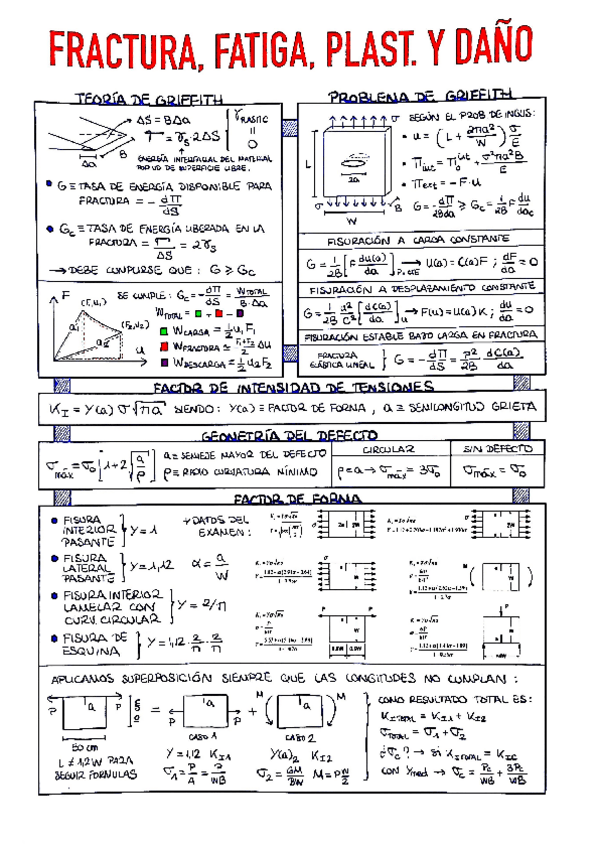 FRACTURA, FATIGA, PLAST. Y DAÑO
TEORÍA DE GRIFFITH
ΔS = BΔa
Π = γs · 2ΔS
γPLASTIC = 0
Δa
B
ENERGÍA INTERFACIAL DEL MATERIAL
POR UD DE SUPERFICIE LIBRE.
G ≡ TASA DE ENERGÍA DISPONIBLE PARA
FRACTURA = - dΠ/dS
Gc ≡ TASA DE ENERGÍA LIBERADA EN LA
FRACTURA = Π/ΔS = 2γs
→ DEBE CUMPLIRSE QUE: G ≥ Gc
F
(F1,u1)
(F2,u2)
a1
a2
u
SE CUMPLE: Gc = -dΠ/dS = WTOTAL/B·Δa
WTOTAL = ■ + ■ - ■
WCARGA = 1/2 u1F1
WFRACTURA = F1+F2/2 Δu
WDESCARGA = 1/2 u2F2
PROBLEMA DE GRIFFITH
σ
L
2a
σ
W
B
SEGÚN EL PROB DE INGLIS:
u = (L + 2πa²/W) σ/E
Πint = Π0int + σ²πa²B/E
Πext = -F·u
G = -dΠ/2Bda ≥ Gc = 1/2B F du/dac
FISURACIÓN A CARGA CONSTANTE
G = 1/2B [F du(a)/da] P=CTE → U(a) = C(a)F ; dF/da = 0
FISURACIÓN A DESPLAZAMIENTO CONSTANTE
→ F(u) = U(a)K ; du/da = 0
FISURACIÓN ESTABLE BAJO CARGA EN FRACTURA
FRACTURA
ELÁSTICA LINEAL
G = -dΠ/dS = P²/2B dC(a)/da
FACTOR DE INTENSIDAD DE TENSIONES
KI = Y(a) σ√πa SIENDO: Y(a) ≡ FACTOR DE FORMA, a ≡ SEMILONGITUD GRIETA
GEOMETRÍA DEL DEFECTO
σmáx = σ0 [1+2√a/ρ]
a ≡ SEMIEJE MAYOR DEL DEFECTO
ρ ≡ RADIO CURVATURA MÍNIMO
CIRCULAR
ρ = a → σmáx = 3σ0
SIN DEFECTO
σmáx = σ0
FACTOR DE FORMA
FISURA
INTERIOR
PASANTE
Y = 1
+DATOS DEL
EXAMEN:
FISURA
LATERAL
PASANTE
Y = 1,12
α = a/W
FISURA INTERIOR
LAMELAR CON
CURV. CIRCULAR
Y = 2/π
FISURA DE
ESQUINA
Y = 1,12 · 2/π · 2/π
APLICAMOS SUPERPOSICIÓN SIEMPRE QUE LAS LONGITUDES NO CUMPLAN:
P
a
P
=
P
a
P
+
M
a
M
50 cm
L ≠ 1,2W PARA
SEGUIR FORMULAS
CASO 1
CASO 2
Y = 1,12 KI1
σ1 = P/A = P/WB
Y(a)2 KI2
σ2 = 6M/BW M = P W/2
COMO RESULTADO TOTAL ES:
KITOTAL = KI1 + KI2
σTOTAL = σ1 + σ2
¿σc? → Si KITOTAL = KIC
CON Ymed → σc = Pc/WB + 3Pc/WB